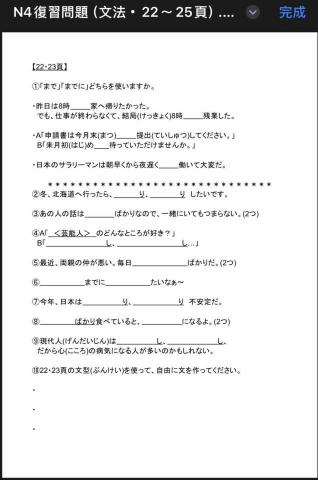 N4復習問題（文法・22～25頁）....
完成
【22・23頁】
①「まで」「までに」どちらを使いますか。
・昨日は8時_____家へ帰りたかった。
でも、仕事が終わらなくて、結局(けっきょく)8時_____残業した。
・A「申請書は今月末(まつ)_____提出(ていしゅつ)してください。」
B「来月初(はじ)め____待っていただけませんか。」
・日本のサラリーマンは朝早くから夜遅く_____働いて大変だ。
＊＊＊＊＊＊＊＊＊＊＊＊＊＊＊＊＊＊＊＊＊＊＊＊＊＊＊＊
②冬、北海道へ行ったら、_______り、________り したいです。
③あの人の話は_______ばかりなので、一緒にいてもつまらない。(2つ)
④A「 ＜芸能人＞ のどんなところが好き？」
B「________________し、________________し…」
⑤最近、両親の仲が悪い。毎日____________ばかりだ。(2つ)
⑥__________までに__________たいなぁ～
⑦今年、日本は_________り、__________り 不安定だ。
⑧________ばかり食べていると、__________になるよ。(2つ)
⑨現代人(げんだいじん)は__________し、______________し、
だから心(こころ)の病気になる人が多いのかもしれない。
⑩22・23頁の文型(ぶんけい)を使って、自由に文を作ってください。
・
・
・